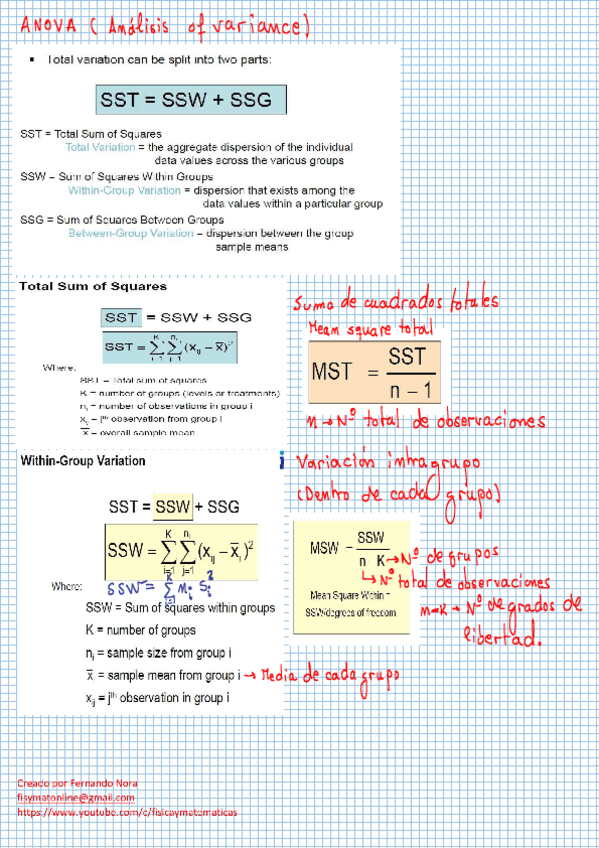 ANOVA (Análisis of variance)
▪ Total variation can be split into two parts:
SST = SSW + SSG
SST = Total Sum of Squares
Total Variation = the aggregate dispersion of the individual
data values across the various groups
SSW = Sum of Squares Within Groups
Within-Group Variation = dispersion that exists among the
data values within a particular group
SSG = Sum of Squares Between Groups
Between-Group Variation = dispersion between the group
sample means
Total Sum of Squares
SST = SSW + SSG
SST = ∑_{i=1}^{K} ∑_{j=1}^{n_i} (x_ij − x̄)²
Where:
SST = Total sum of squares
K = number of groups (levels or treatments)
n_i = number of observations in group i
x_ij = j^th observation from group i
x̄ = overall sample mean
Suma de cuadrados totales
Mean square total
MST = SST / (n − 1)
n → Nº total de observaciones
Within-Group Variation
Variación intragrupo
(Dentro de cada grupo)
SST = SSW + SSG
SSW = ∑_{i=1}^{K} ∑_{j=1}^{n_i} (x_ij − x̄_i)²
Where: SSW = ∑_{i=1}^{K} n_i S_i²
SSW = Sum of squares within groups
K = number of groups
n_i = sample size from group i
x̄_i = sample mean from group i → Media de cada grupo
x_ij = j^th observation in group i
MSW = SSW / (n − K) → Nº de grupos
↳ Nº total de observaciones
Mean Square Within =
SSW/degrees of freedom
n-K → Nº de grados de
libertad.
Creado por Fernando Nora
fisymatonline@gmail.com
https://www.youtube.com/c/fisicaymatematicas